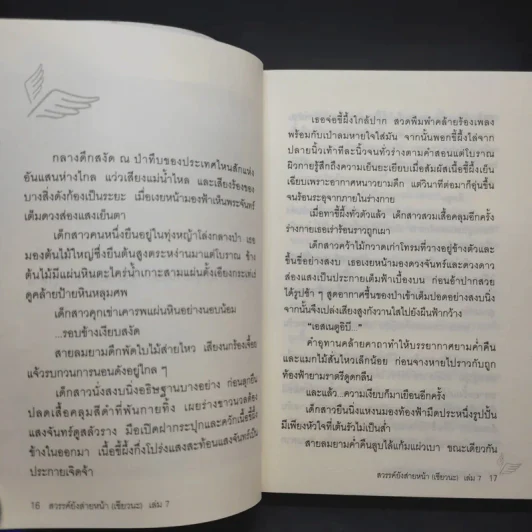 กลางดึกสงัด ณ ป่าทึบของประเทศไหนสักแห่ง
อันแสนห่างไกล แว่วเสียงแม่น้ำไหล และเสียงร้องของ
บางสิ่งดังก้องเป็นระยะ เมื่อเงยหน้ามองฟ้าเห็นพระจันทร์
เต็มดวงส่องแสงเย็นตา
เด็กสาวคนหนึ่งยืนอยู่ในทุ่งหญ้าโล่งกลางป่า เธอ
มองต้นไม้ใหญ่ซึ่งยืนต้นสูงตระหง่านมาแต่โบราณ ข้าง
ต้นไม้มีแผ่นหินตะไคร่น้ำเกาะสามแผ่นตั้งเอียงกระเท่เร่
ดูคล้ายป้ายหินหลุมศพ
เด็กสาวคุกเข่าเคารพแผ่นหินอย่างนอบน้อม
...รอบข้างเงียบสงัด
สายลมยามดึกพัดใบไม้ส่ายไหว เสียงนกร้องเจื้อย
แจ้วรบกวนการนอนดังอยู่ใกล้ ๆ
เด็กสาวนั่งสงบนิ่งอธิษฐานบางอย่าง ก่อนลุกยืน
ปลดเสื้อคลุมสีดำที่พันกายทิ้ง เผยร่างขาวนวลต้อง
แสงจันทร์ดูสล้วราง มือเปิดฝากระปุกและควักเนื้อขี้ผึ้ง
ข้างในออกมา เนื้อขี้ผึ้งกึ่งโปร่งแสงสะท้อนแสงจันทร์เป็น
ประกายเจิดจ้า
16 สวรรค์ยังส่ายหน้า (เชียวนะ) เล่ม 7
เธอจ่อขี้ผึ้งใกล้ปาก สวดพึมพำคล้ายร้องเพลง
พร้อมกับเป่าลมหายใจใส่มัน จากนั้นพอกขี้ผึ้งไล่จาก
ปลายนิ้วเท้าทีละนิ้วจนทั่วร่างตามคำสอนแต่โบราณ
ผิวกายรู้สึกถึงความเย็นยะเยียบเมื่อสัมผัสเนื้อขี้ผึ้งเย็น
เฉียบเพราะอากาศหนาวยามดึก แต่วินาทีต่อมาก็อุ่นขึ้น
จนร้อนระอุจากภายในร่างกาย
เมื่อทาขี้ผึ้งทั่วตัวแล้ว เด็กสาวสวมเสื้อคลุมอีกครั้ง
ร่างกายเธอเร่าร้อนราวถูกเผา
เด็กสาวคว้าไม้กวาดเก่าโทรมที่วางอยู่ข้างตัวและ
ขึ้นขี่อย่างสงบ เธอเงยหน้ามองดวงจันทร์และดวงดาว
ส่องแสงเป็นประกายเต็มฟ้าเบื้องบน ก่อนอ้าปากสวย
ได้รูปช้า ๆ สูดอากาศชื้นของป่าเข้าเต็มปอดอย่างสงบนิ่ง
จากนั้นจึงเปล่งเสียงสูงกังวานใสไปยังผืนฟ้ากว้าง
"เอสเนดูอิบี..."
คำอุทานคล้ายคาถาทำให้บรรยากาศยามค่ำคืน
และแมกไม้สั่นไหวเล็กน้อย ก่อนจางหายไปราวกับถูก
ท้องฟ้ายามราตรีดูดกลืน
และแล้ว...ความเงียบก็มาเยือนอีกครั้ง
เด็กสาวยืนนิ่งแหงนมองท้องฟ้ามืดประหนึ่งรูปปั้น
มีเพียงหัวใจที่เต้นรัวไม่เป็นส่ำ
สายลมยามค่ำคืนลูบไล้แก้มแผ่วเบา ขณะเดียวกัน
สวรรค์ยังส่ายหน้า (เชียวนะ) เล่ม 7 17